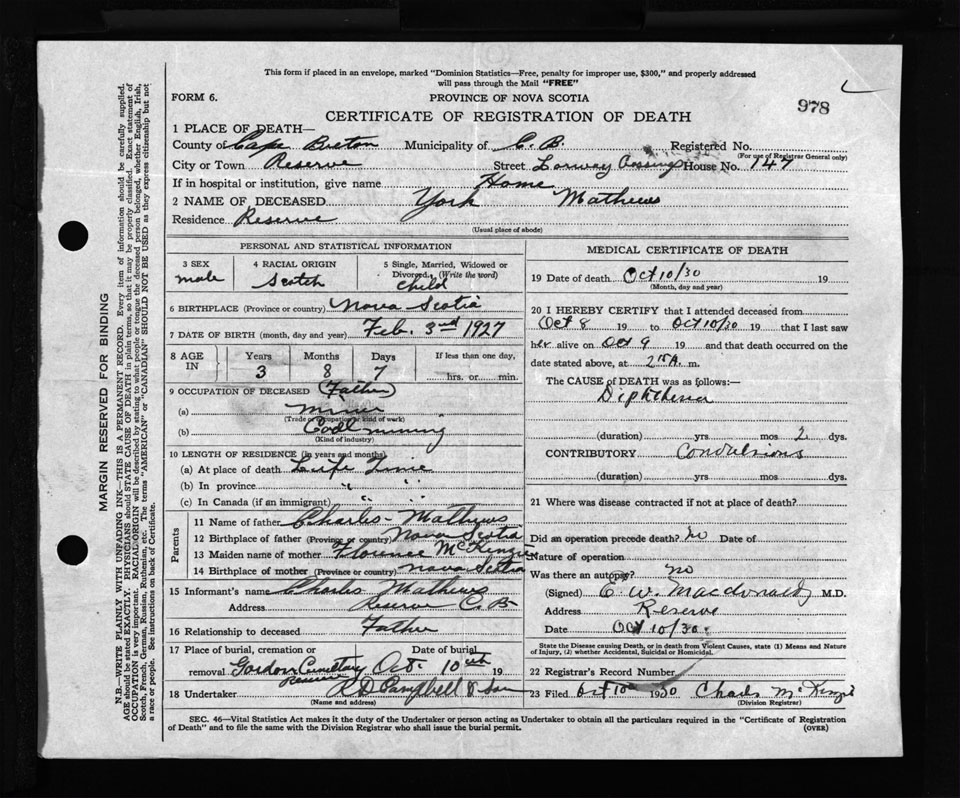 This form if placed in an envelope, marked "Dominion Statistics—Free, penalty for improper use, $300," and properly addressed
will pass through the Mail "FREE"
FORM 6.
PROVINCE OF NOVA SCOTIA
978
CERTIFICATE OF REGISTRATION OF DEATH
1 PLACE OF DEATH—
County of Cape Breton Municipality of C. B. Registered No.
(For use of Registrar General only)
City or Town Reserve Street Lorway House No. 147
If in hospital or institution, give name Home
2 NAME OF DECEASED York Mathews
Residence Reserve
(Usual place of abode)
PERSONAL AND STATISTICAL INFORMATION
3 SEX male
4 RACIAL ORIGIN Scotch
5 Single, Married, Widowed or
Divorced, (Write the word)
Child
6 BIRTHPLACE (Province or country) Nova Scotia
7 DATE OF BIRTH (month, day and year) Feb. 3rd 1927
8 AGE IN Years Months Days If less than one day,
3 8 7 hrs. or min.
9 OCCUPATION OF DECEASED (Father)
(a) miner
(Trade or occupation or kind of work)
(b) Coal mining
(Kind of industry)
10 LENGTH OF RESIDENCE (in years and months)
(a) At place of death Life Time
(b) In province " "
(c) In Canada (if an immigrant) " "
Parents
11 Name of father Charles Mathews
12 Birthplace of father (Province or country) Nova Scotia
13 Maiden name of mother Florence McKenzie
14 Birthplace of mother (Province or country) Nova Scotia
15 Informant's name Charles Mathews
Address Reserve C.B.
16 Relationship to deceased Father
17 Place of burial, cremation or Date of burial
removal Gordon Cemetary Oct 10th 19
18 Undertaker R D Campbell & Son
(Name and address)
MEDICAL CERTIFICATE OF DEATH
19 Date of death Oct 10/30 19
(Month, day and year)
20 I HEREBY CERTIFY that I attended deceased from
Oct 8 19 to Oct 10/30 19 that I last saw
her alive on Oct 9 19 and that death occurred on the
date stated above, at 2 A. m.
The CAUSE OF DEATH was as follows:
Diphtheria
(duration) yrs. mos 2 dys.
CONTRIBUTORY Convulsions
(duration) yrs. mos dys.
21 Where was disease contracted if not at place of death?
Did an operation precede death? no Date of
Nature of operation
Was there an autopsy? no
(Signed) E. W. Macdonald M.D.
Address Reserve
Date Oct 10/30.
State the Disease causing Death, or in death from Violent Causes, state (1) Means and Nature
of Injury, (2) whether Accidental, Suicidal or Homicidal.
22 Registrar's Record Number
23 Filed Oct 10 1930 Charles McKenzie
(Division Registrar)
SEC. 46—Vital Statistics Act makes it the duty of the Undertaker or person acting as Undertaker to obtain all the particulars required in the "Certificate of Registration
of Death" and to file the same with the Division Registrar who shall issue the burial permit.
(OVER)
MARGIN RESERVED FOR BINDING
N.B.—WRITE PLAINLY WITH UNFADING INK—THIS IS A PERMANENT RECORD. Every item of information should be carefully supplied.
AGE should be stated EXACTLY. PHYSICIANS should STATE CAUSE OF DEATH in plain terms, so that it may be properly classified. Exact statement of
OCCUPATION is very important. RACIAL ORIGIN will be described by stating to what people or tongue the deceased person belonged, whether English, Irish,
Scotch, French, German, Russian, Ruthenian, etc. The terms "AMERICAN" or "CANADIAN" SHOULD NOT BE USED as they express citizenship but not
a race or people. See instructions on back of Certificate.